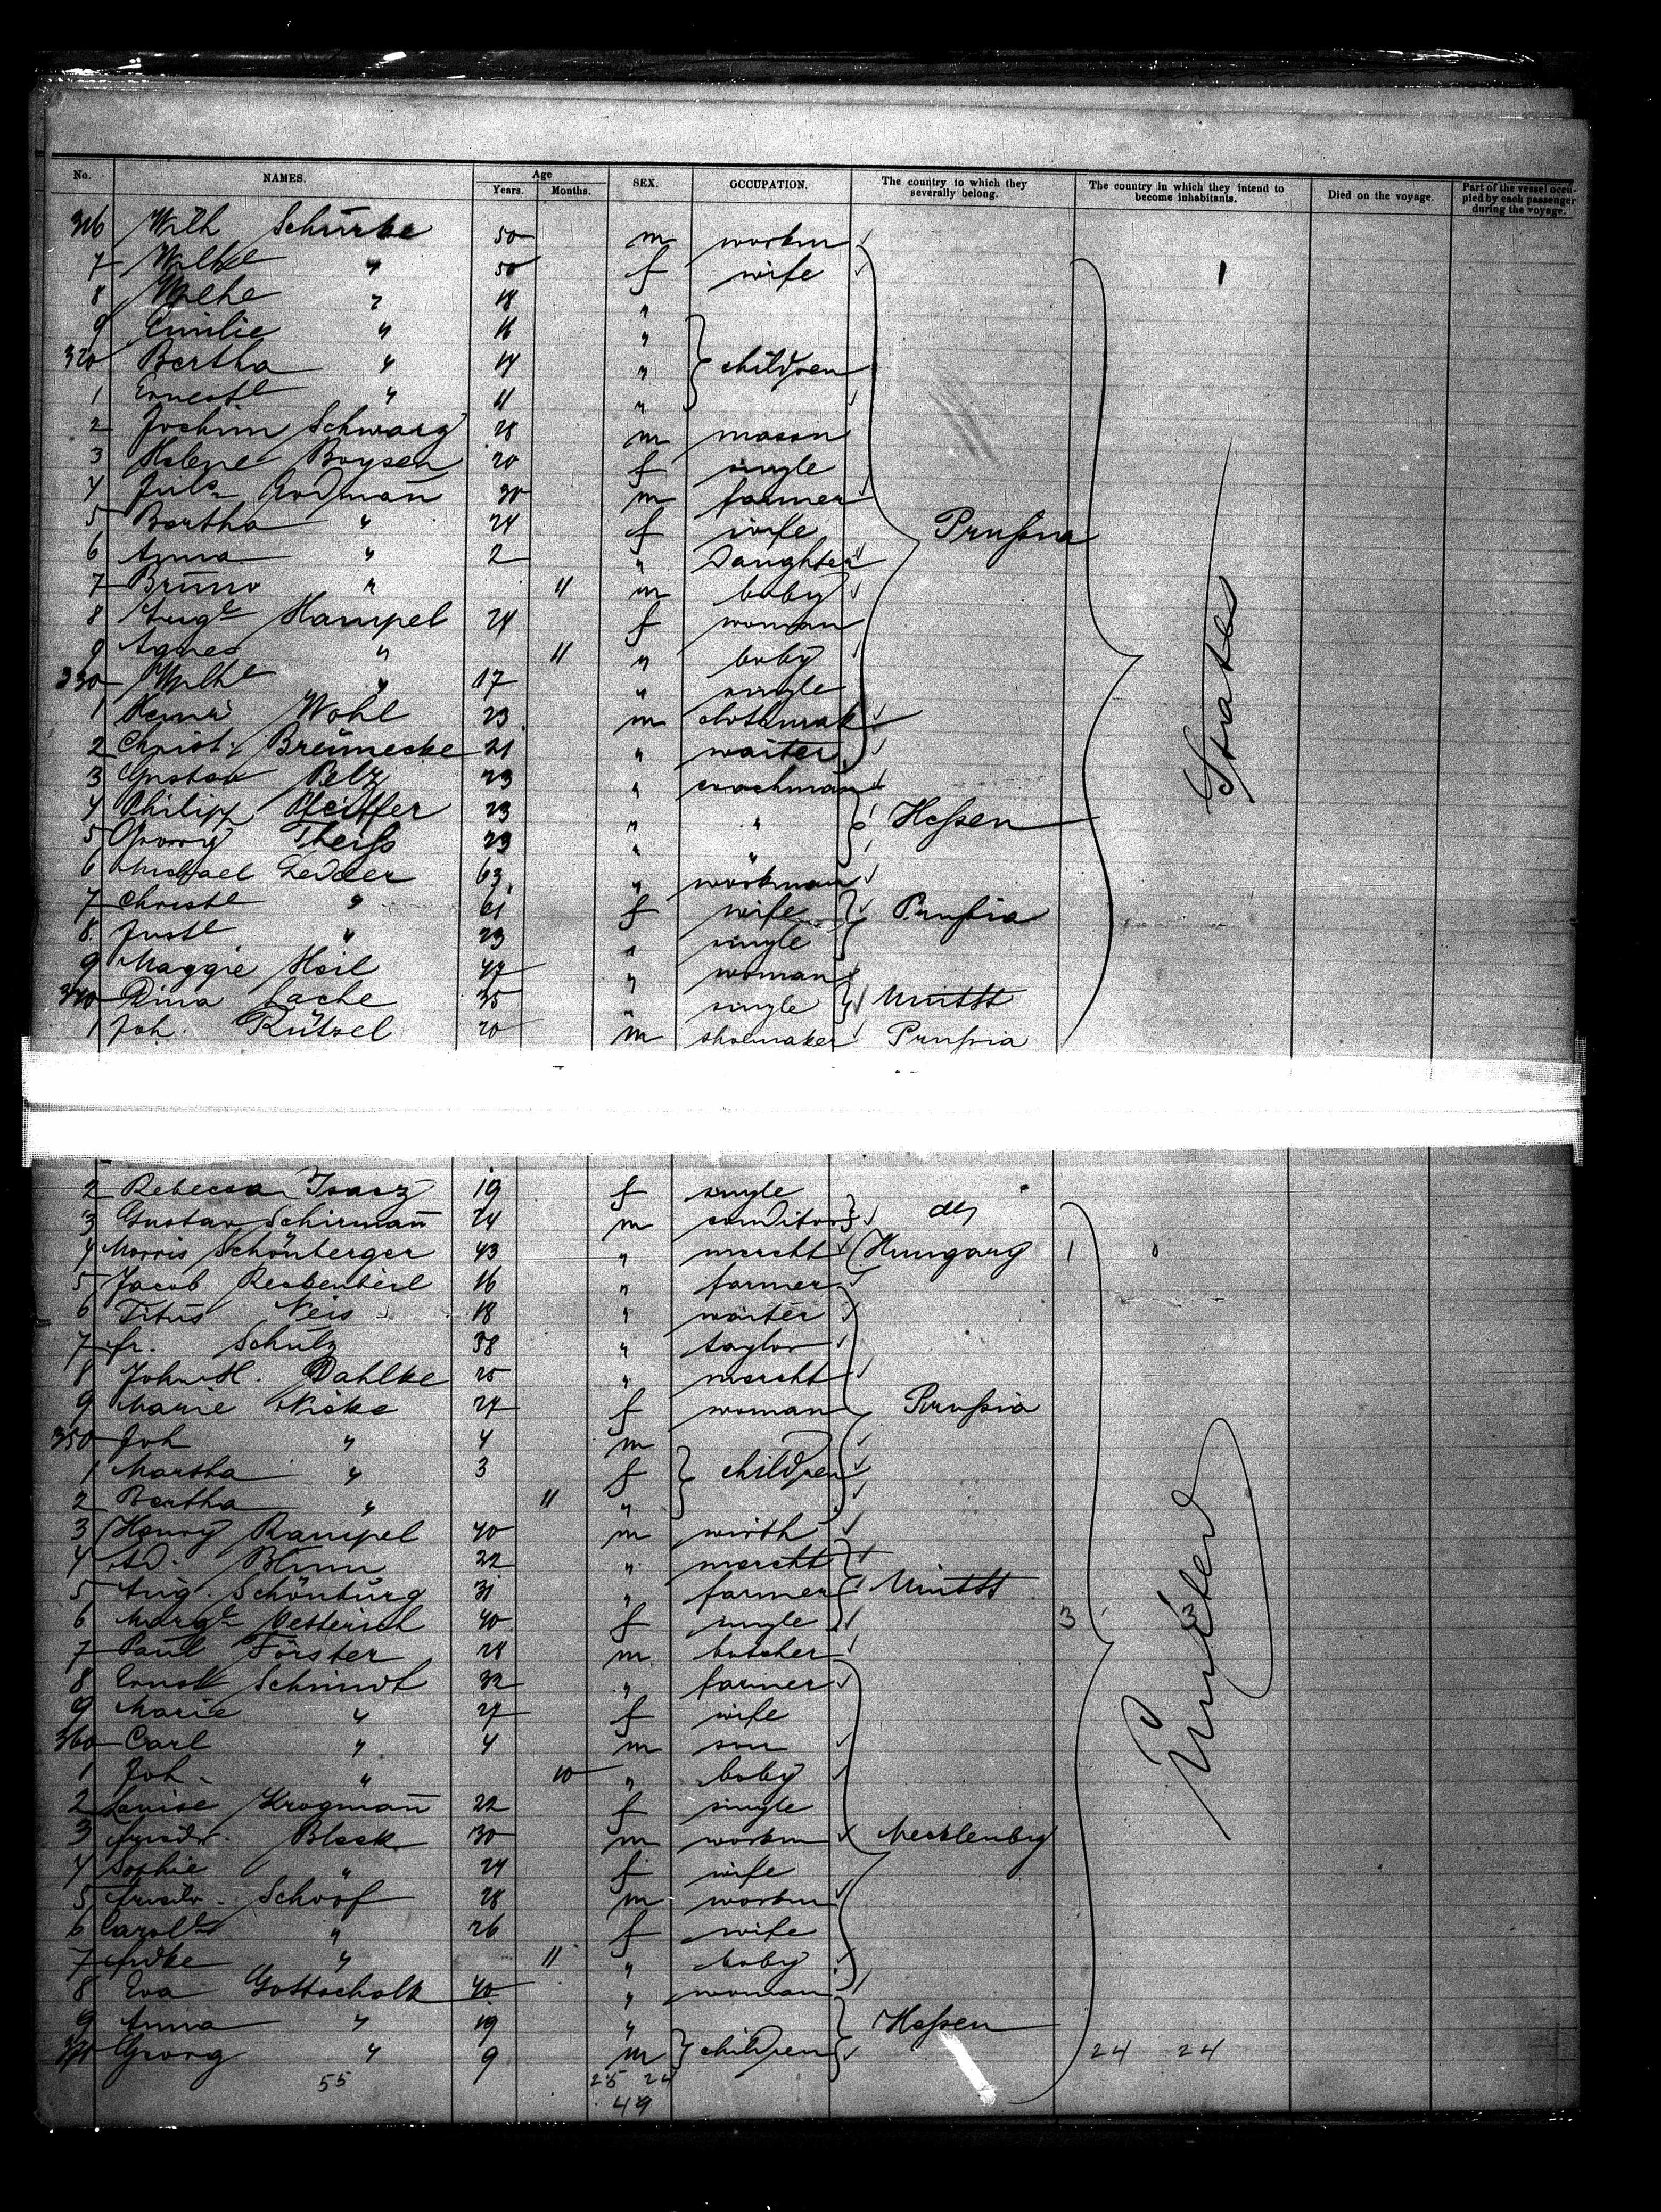 No. NAMES. Age Years. Months. SEX. OCCUPATION. The country to which they severally belong. The country in which they intend to become inhabitants. Died on the voyage. Part of the vessel occupied by each passenger during the voyage.
316 Wilh Schürke 50 m workm
7 Wilhe " 50 f wife 1
8 Wilhe " 18 "
9 Emilie " 16 "
320 Bertha " 14 " children
1 Ernestl " 11 "
2 Jochim Schwarz 28 m mason
3 Helene Boysen 20 f single
4 Juls Grodmañ 30 m farmer
5 Bertha " 24 f wife Prußia
6 Anna " 2 " Daughter
7 Bruno " 11 m baby
8 Augte Hampel 24 f woman
9 Agnes " 11 " baby
330 Wilhe " 17 " single
1 Heinr Wohl 23 m clothmak
2 Christ. Breünecke 21 " waiter
3 Gustav Pelz 23 " coachman
4 Philipp Pfeiffer 23 " " Heßen
5 Georg Theiß 23 " "
6 Michael Ledder 63 " workman
7 Christl " 61 f wife Prußia
8 Justl " 23 " single
9 Maggie Heil 47 " woman
340 Dina Lache 35 " single UnitSt
1 Joh. Rützel 20 m shoemaker Prußia
States
2 Rebecca Isacz 19 f single
3 Gustav Schirmañ 24 m conditor do
4 Morris Schönberger 43 " mercht Hungary 1
5 Jacob 16 " farmer
6 Titus Neis 18 " waiter
7 Fr. Schulz 38 " taylor
8 John H. Dahlke 25 " mercht
9 Marie Nicke 27 f woman Prußia
350 Joh " 4 m
1 Martha " 3 f children
2 Bertha " 11 "
3 Henry Rampel 40 m wirth
4 Ad. Blum 22 " mercht
5 Aug. Schönburg 31 " farmer UnitSt
6 Margte Oetterich 40 f single 3 3
7 Paul Förster 28 m butcher
8 Ernst Schmidt 32 " farmer
9 Marie " 27 f wife
360 Carl " 4 m son
1 Joh. " 10 " baby
2 Louise Krogmañ 22 f single
3 Friedr. Block 30 m workm Mecklenbg
4 Sophie " 24 f wife
5 Friedr. Schoof 28 m workm
6 Carolte " 26 f wife
7 " 11 " baby
8 Eva Gottschalk 40 " woman
9 Anna " 19 " Heßen
370 Georg " 9 m children 24 24
United
55 25 24
49